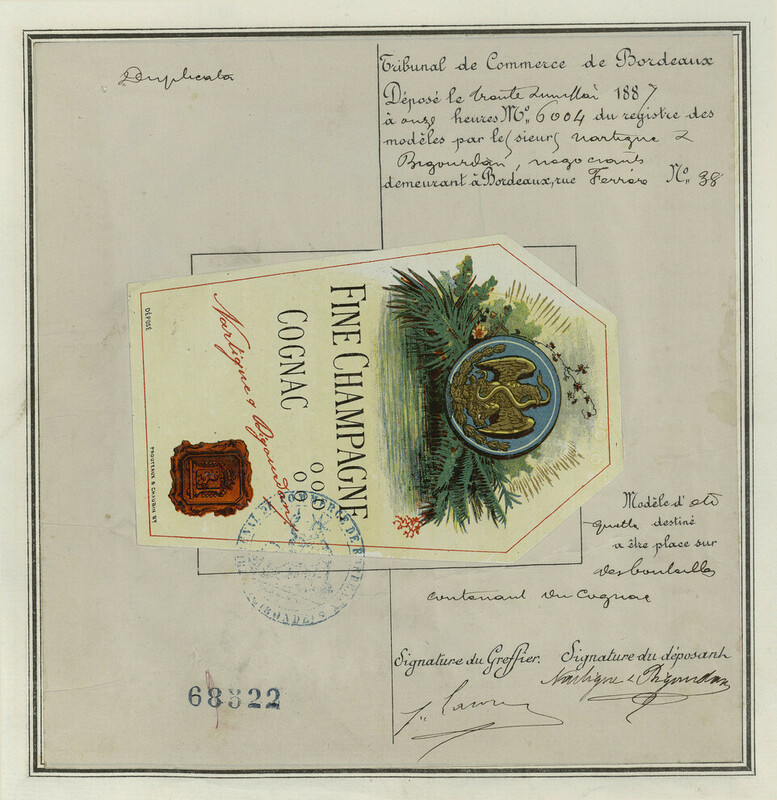 Duplicata
Tribunal de Commerce de Bordeaux
Déposé le trente un Mai 1887
à onze heures No. 6004 du registre des
modèles par les sieurs Nartigue &
Bigourdan, négociants
demeurant à Bordeaux, rue Ferrère No. 38
FINE CHAMPAGNE
COGNAC
000
00
Nartigue & Bigourdan
DÉPOSÉ
Modèle d'éti
quette destiné
a être place sur
des bouteilles
contenant du Cognac
Signature du Greffier.
Signature du déposant
Nartigue & Bigourdan
68322